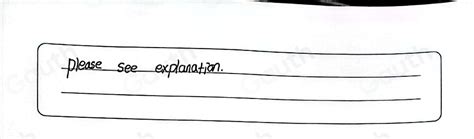 please see explanation.